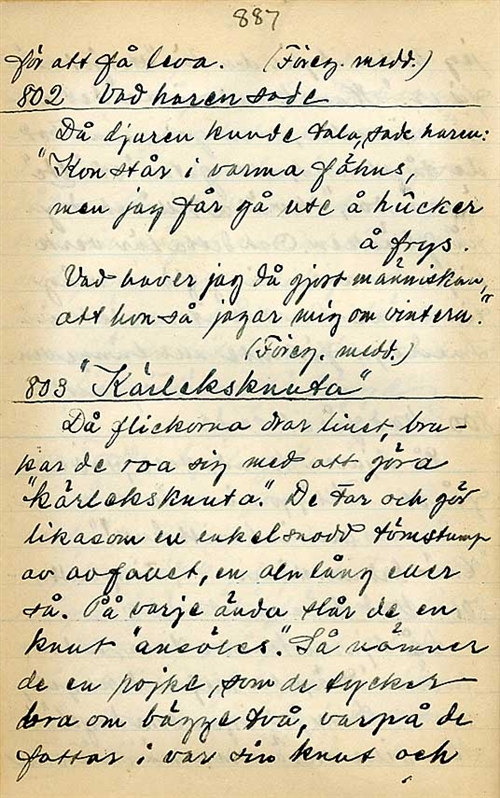 887
för att få leva. (Föreg. medd.)
802 Vad haren sade
Då djuren kunde tala, sade haren:
"Kon står i varma fähus,
men jag får gå ute å hûcker
å frys.
Vad haver jag då gjort människan,
att hon så jagar mig om vintern."
(Föreg. medd.)
803 "Kärleksknuta"
Då flickorna drar linet, bru-
kar de roa sig med att göra
"kärleksknuta". De tar och gör
likasom en enkelsnodd tömstump
av avfallet, en aln lång eller
så. På varje ända slår de en
knut "ansöles". Så nämner
de en pojke, som de tycker
bra om bägge två, varpå de
fattar i var sin knut och